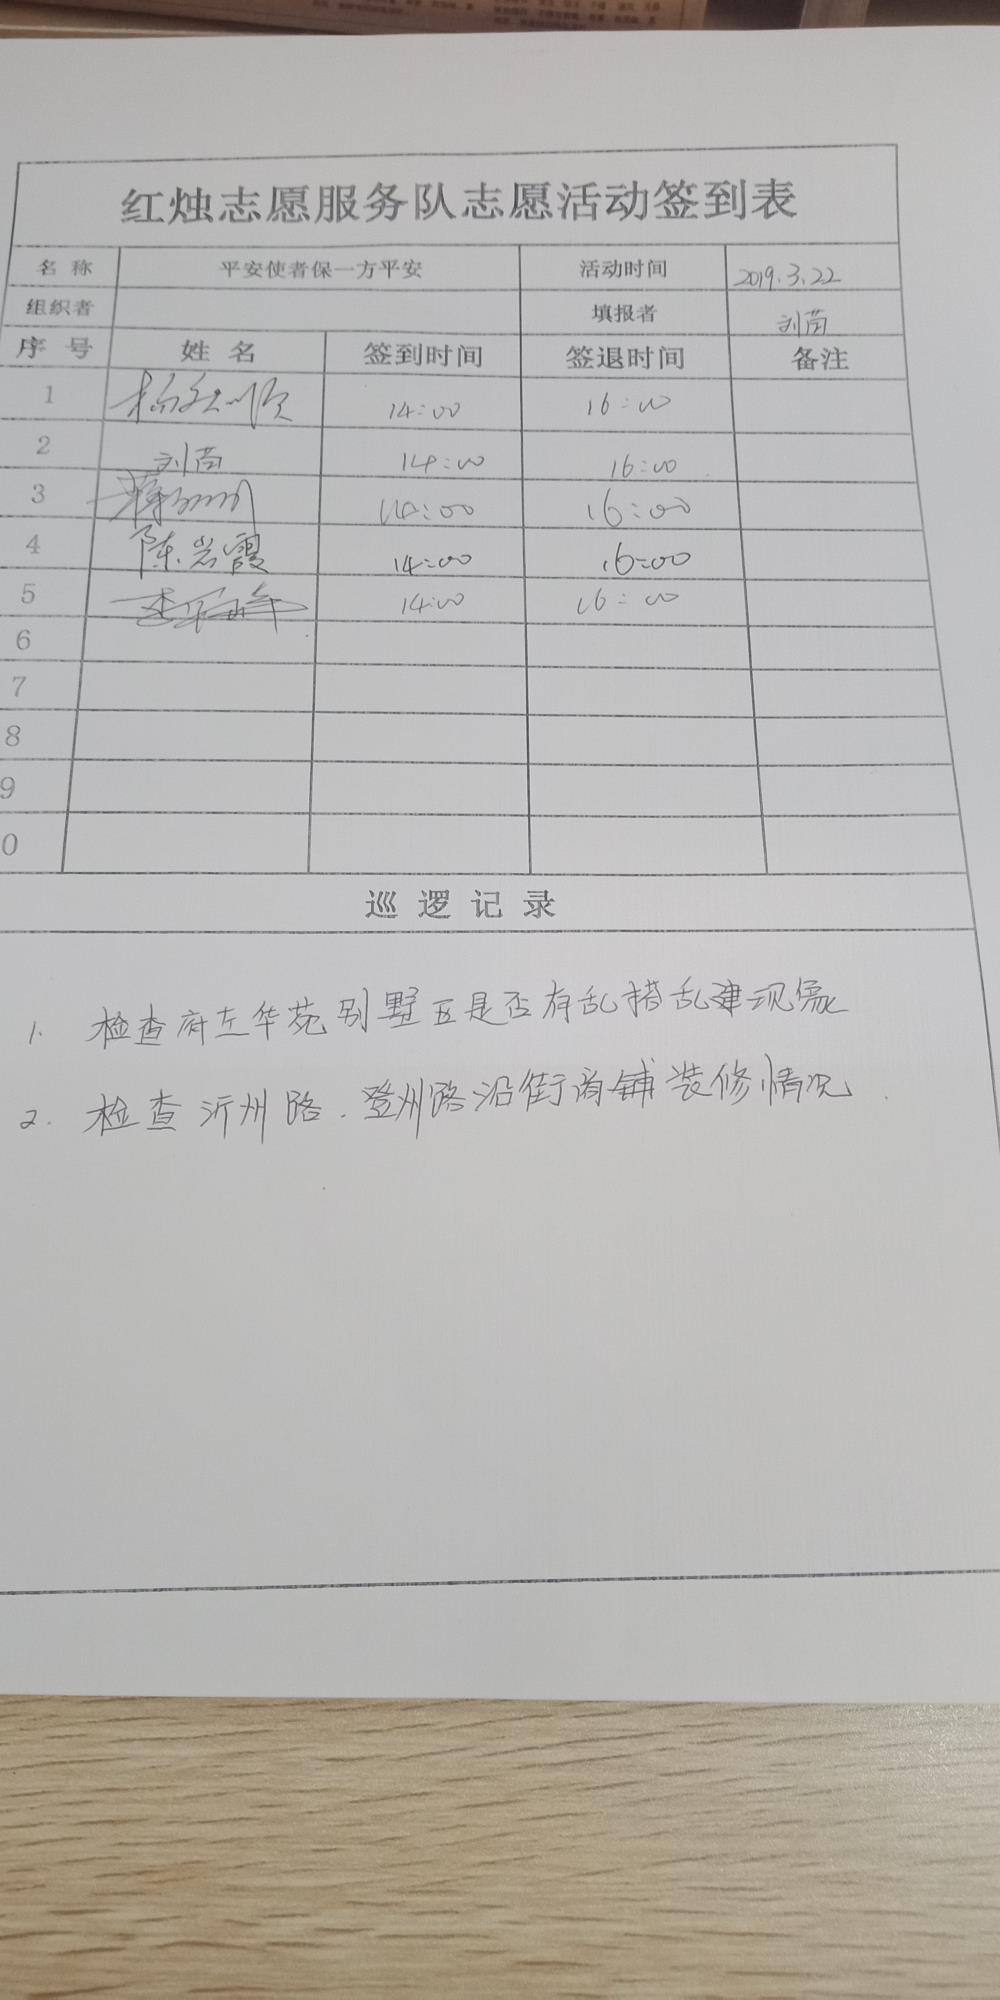 红烛志愿服务队志愿活动签到表
名称 平安使者保一方平安 活动时间 2019.3.22
组织者 填报者 刘茵
序号 姓名 签到时间 签退时间 备注
1 14:00 16:00
2 刘茵 14:00 16:00
3 14:00 16:00
4 陈岩霞 14:00 16:00
5 14:00 16:00
6
7
8
9
0
巡逻记录
1. 检查府左华苑别墅区是否存乱搭乱建现象
2. 检查沂州路.登州路沿街商铺装修情况